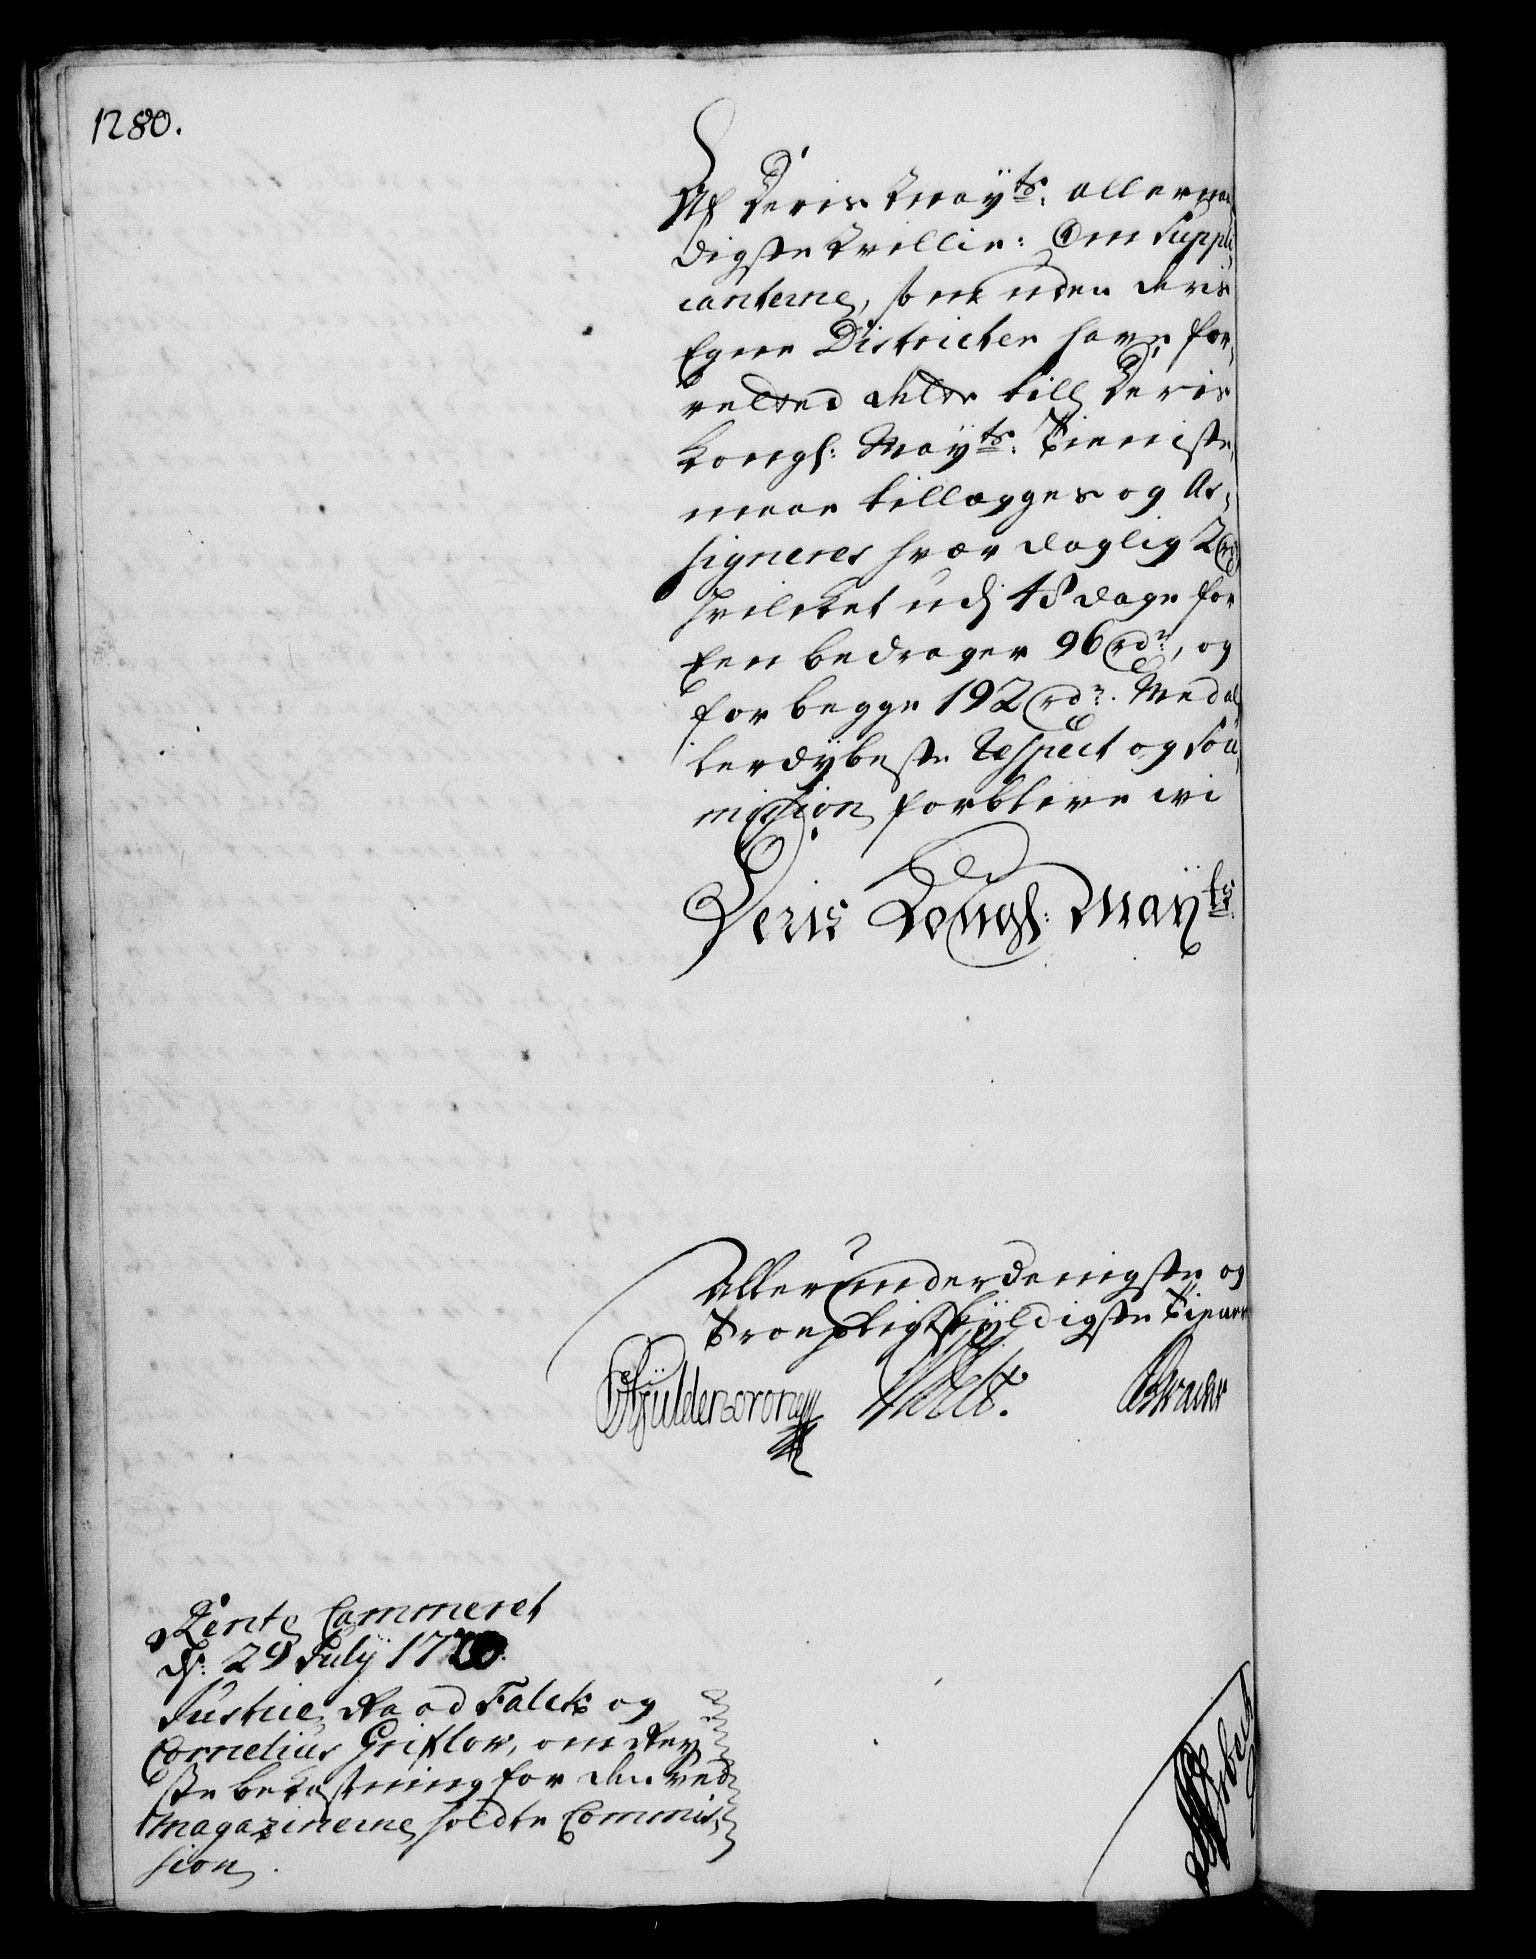 1280.
Af Deris Mayts: allernaa-
digste Villie: Om Suppli-
canterne, som uden deris
Egne Districter have for-
retted dette till Deris
Kongl: Mayts: Tieniste,
maae tillægges og As-
signeres hver daglig 2 rdr
hvilcket udj 48 dage for
Een bedrager 96 rdr, og
for begge 192 rdr. Med al-
lerdybeste Respect og Sou-
mission forblive wi
Deris Kongl: Mayts:
Allerunderdanigste og
Troepligtskyldigste Tienere
Gyldencrone
Rente Cammeret
d: 29 July 1720.
Justice Raad Falck og
Cornelius Griklow, om Rey-
se bekostning for den ved
Magazinerne holdte Commis-
sion.